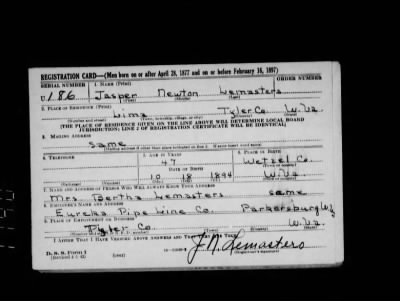 REGISTRATION CARD—(Men born on or after April 28, 1877 and on or before February 16, 1897)
SERIAL NUMBER 1. NAME (Print) ORDER NUMBER
U 186 Jasper Newton Lemasters
(First) (Middle) (Last)
2. PLACE OF RESIDENCE (Print)
Lima Tyler Co. W.Va
(Number and street) (Town, township, village, or city) (County) (State)
[THE PLACE OF RESIDENCE GIVEN ON THE LINE ABOVE WILL DETERMINE LOCAL BOARD
JURISDICTION; LINE 2 OF REGISTRATION CERTIFICATE WILL BE IDENTICAL]
3. MAILING ADDRESS
same
[Mailing address if other than place indicated on line 2. If same insert word same]
4. TELEPHONE 5. AGE IN YEARS 6. PLACE OF BIRTH
47 Wetzel Co.
DATE OF BIRTH (Town or county)
10 18 1894 W.Va.
(Exchange) (Number) (Mo.) (Day) (Yr.) (State or country)
7. NAME AND ADDRESS OF PERSON WHO WILL ALWAYS KNOW YOUR ADDRESS
Mrs. Bertha Lemasters same
8. EMPLOYER'S NAME AND ADDRESS
Eureka Pipe Line Co. Parkersburg W.Va
9. PLACE OF EMPLOYMENT OR BUSINESS
Tyler Co. W.Va.
(Number and street or R. F. D. number) (Town) (County) (State)
I AFFIRM THAT I HAVE VERIFIED ABOVE ANSWERS AND THAT THEY ARE TRUE.
D. S. S. Form 1
(Revised 4-1-42)
J. N. Lemasters
(Registrant's signature)